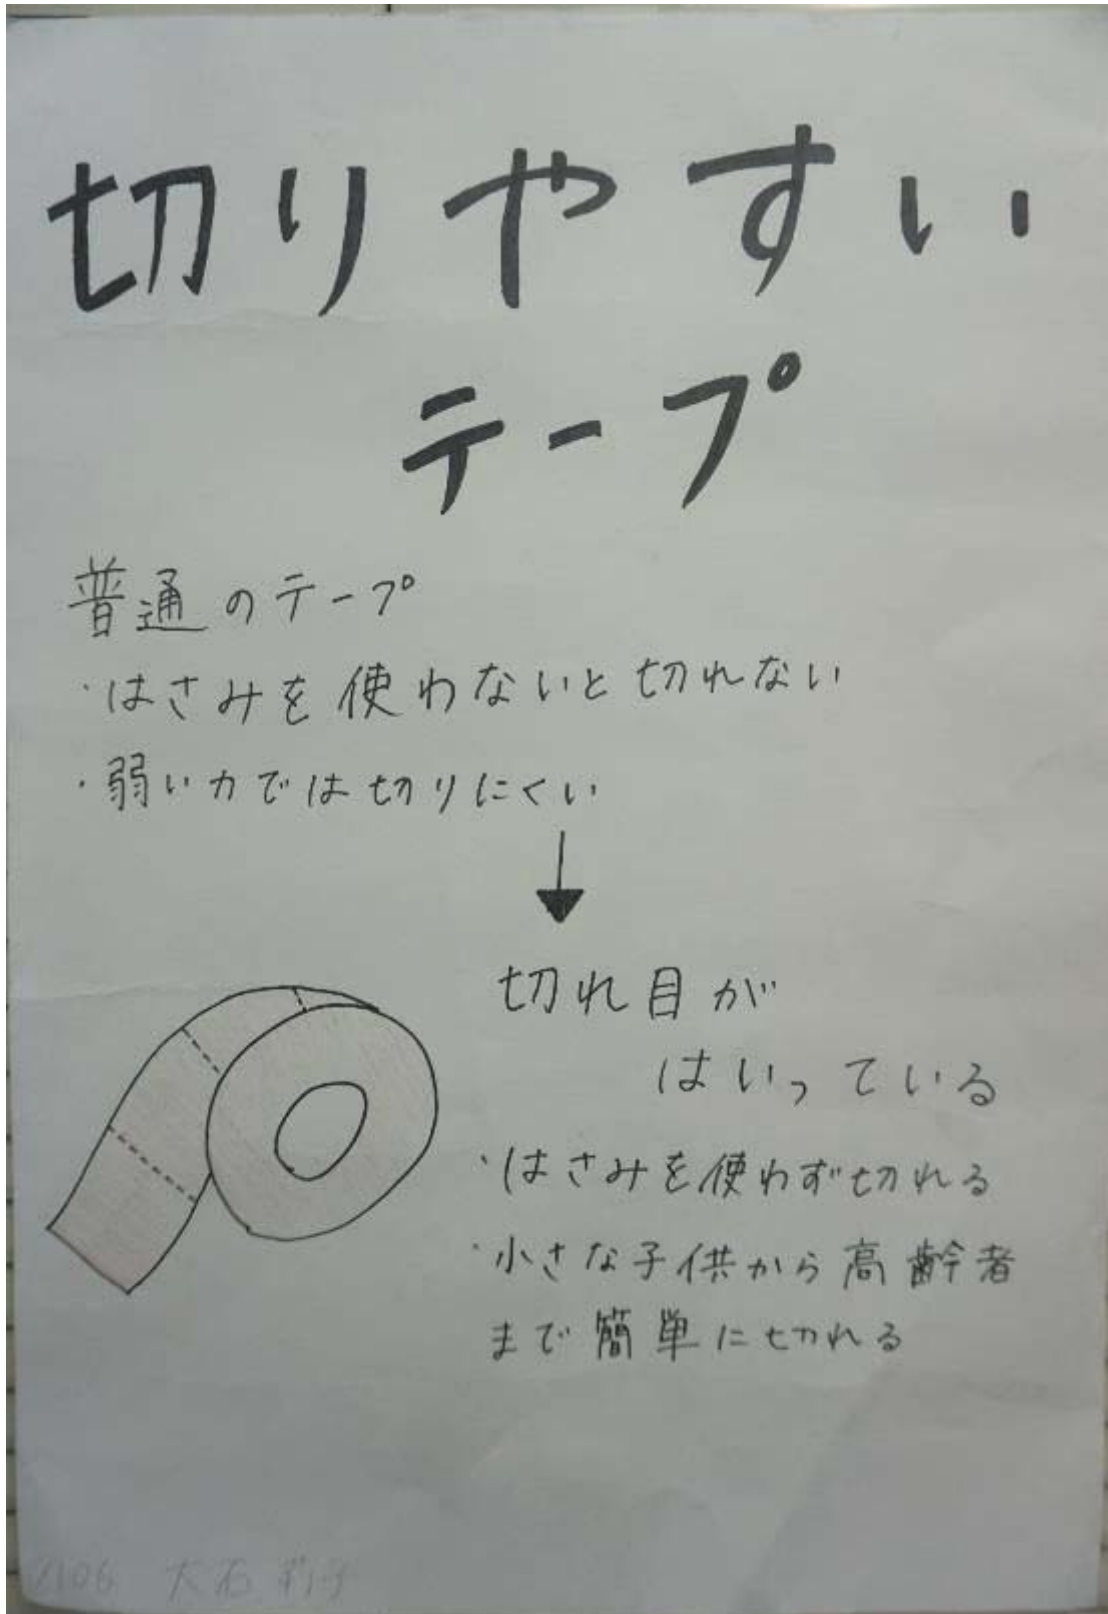 切りやすい
テープ
普通のテープ
・はさみを使わないと切れない
・弱い力では切りにくい
切れ目が
はいっている
・はさみを使わず切れる
・小さな子供から高齢者
まで簡単に切れる
大石